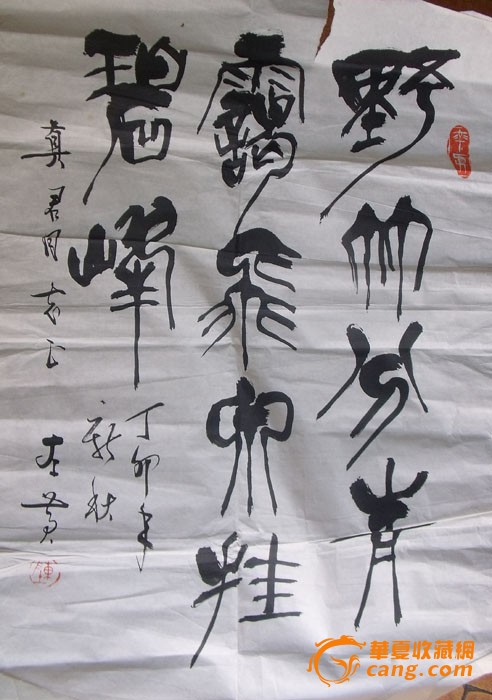 野竹分青
靄飛泉挂
碧峰
丁卯年
新秋
真君同志正
華夏收藏網
cang.com